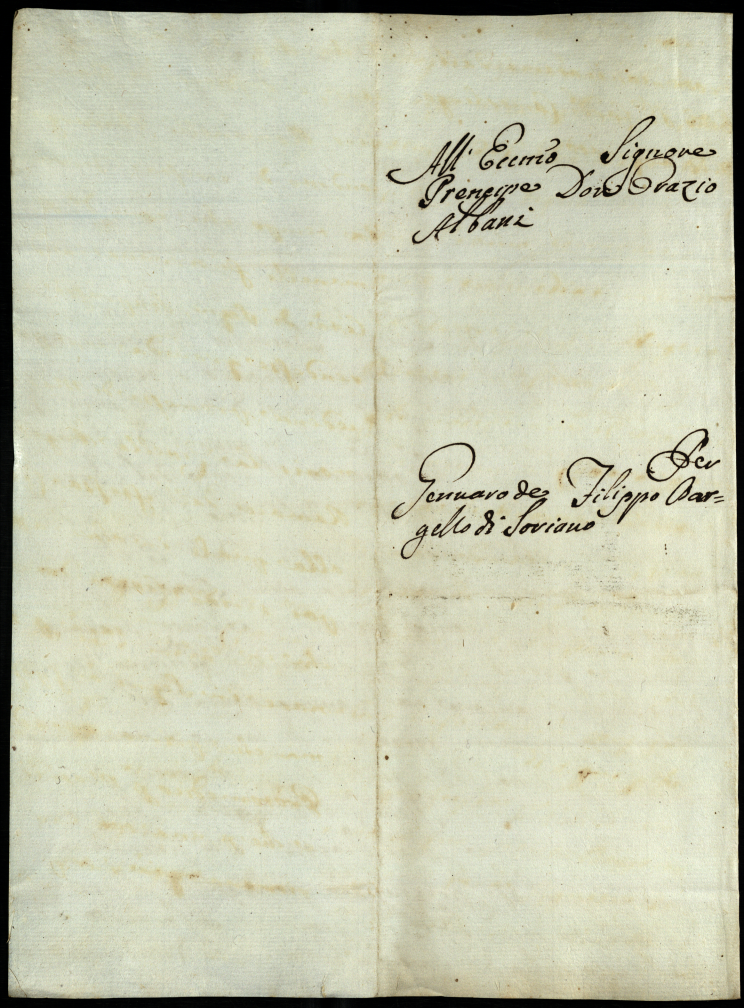 All' Eccmo Signore
Prencipe Don Orazio
Albani
Per
Gennaro de Filippo Bar=
gello di Soriano